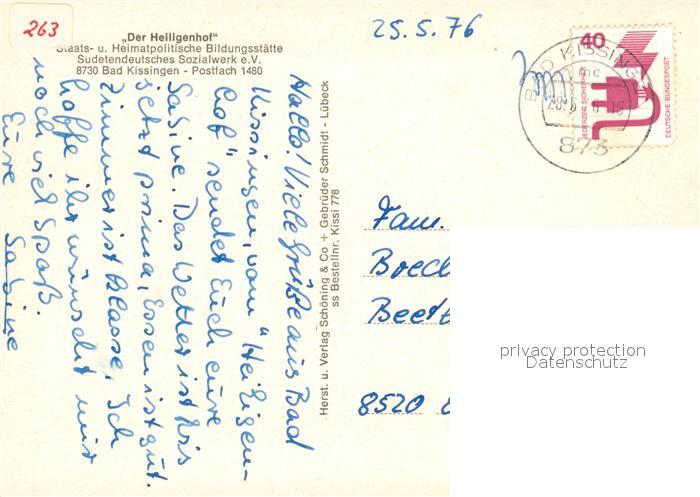 263
„Der Heiligenhof"
Staats- u. Heimatpolitische Bildungsstätte
Sudetendeutsches Sozialwerk e.V.
8730 Bad Kissingen - Postfach 1480
25.5.76
Hallo! Viele Grüße aus Bad
Kissingen, vom "Heiligen-
hof" sendet Euch eure
Sabine. Das Wetter ist bis
jetzt prima, Essen ist gut.
Zimmer ist klasse. Ich
hoffe ihr wünscht mir
noch viel Spaß.
Eure Sabine
Herst. u. Verlag Schöning & Co + Gebrüder Schmidt - Lübeck
ss Bestellnr. Kissi 778
40
JEDERZEIT SICHERHEIT
DEUTSCHE BUNDESPOST
BAD KISSING
873
Fam.
Boec
Beet
8520
privacy protection
Datenschutz